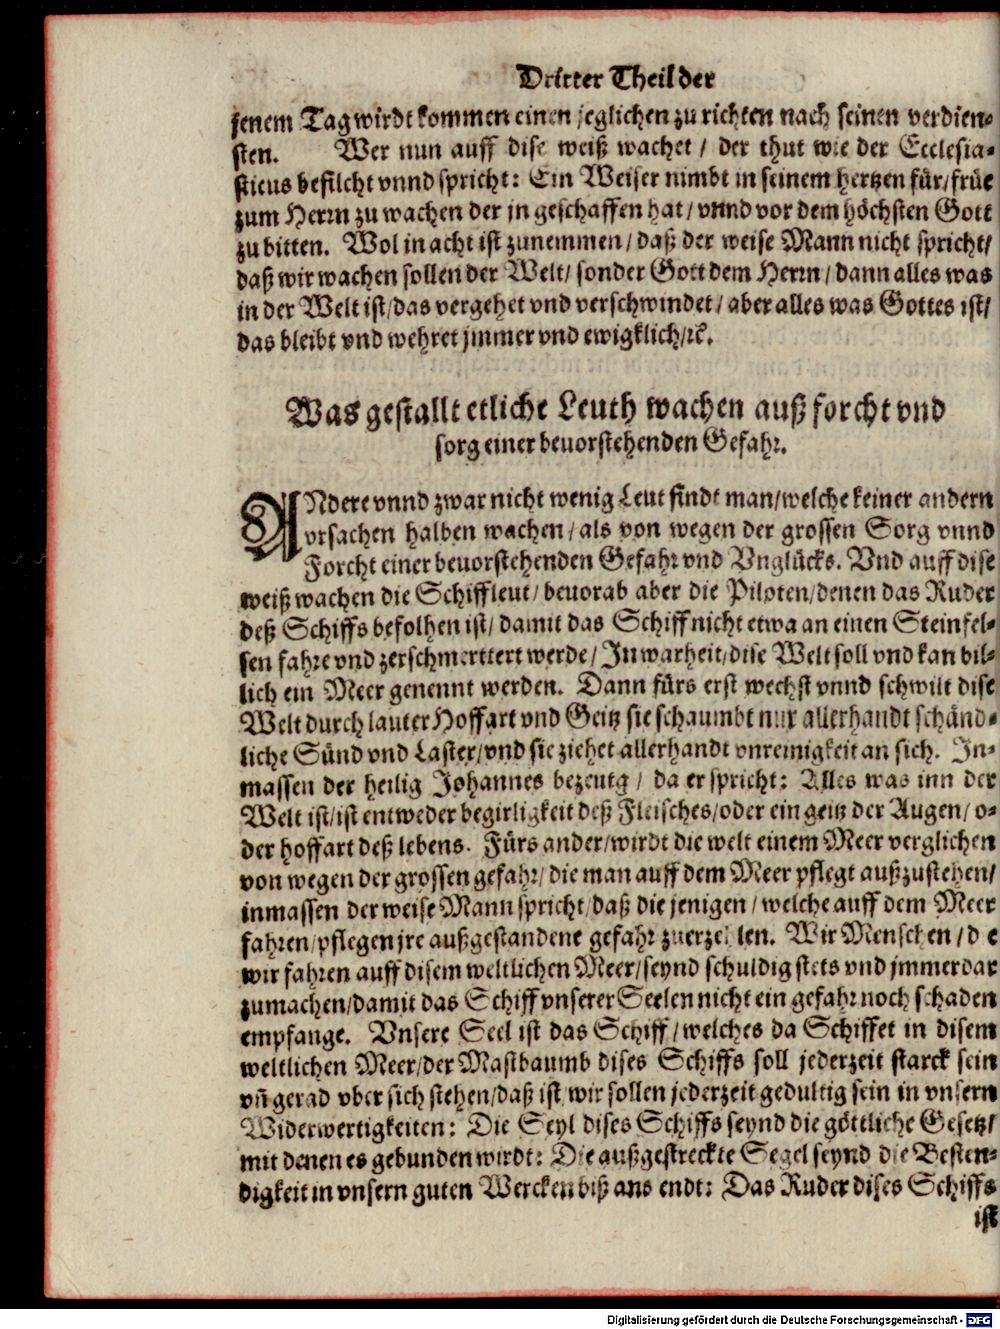 Dritter Theil der
jenem Tag wirdt kommen einen jeglichen zu richten nach seinen verdien-
sten. Wer nun auff dise weiß wachet / der thut wie der Ecclesia-
sticus befilcht vnnd spricht: Ein Weiser nimbt in seinem hertzen für/früe
zum Herrn zu wachen der jn geschaffen hat/ vnnd vor dem höchsten Gott
zu bitten. Wol in acht ist zunemmen/ daß der weise Mann nicht spricht/
daß wir wachen sollen der Welt/ sonder Gott dem Herrn/ dann alles was
in der Welt ist/das vergehet vnd verschwindet/ aber alles was Gottes ist/
das bleibt vnd wehret jmmer vnd ewigklich/ꝛc.
Was gestallt etliche Leuth wachen auß forcht vnd
sorg einer beuorstehenden Gefahr.
ANdere vnnd zwar nicht wenig Leut findt man/welche keiner andern
vrsachen halben wachen/ als von wegen der grossen Sorg vnnd
Forcht einer beuorstehenden Gefahr vnd Vnglücks. Vnd auff dise
weiß wachen die Schiffleut/ beuorab aber die Piloten/denen das Ruder
deß Schiffs befolhen ist/ damit das Schiff nicht etwa an einen Steinfel-
sen fahre vnd zerschmerttert werde/ In warheit/dise Welt soll vnd kan bil-
lich ein Meer genennt werden. Dann fürs erst wechst vnnd schwilt dise
Welt durch lauter Hoffart vnd Geitz sie schaumbt nur allerhandt schänd-
liche Sünd vnd Laster/vnd sie ziehet allerhandt vnreinigkeit an sich. In-
massen der heilig Johannes bezeutg / da er spricht: Alles was inn der
Welt ist/ist entweder begirligkeit deß Fleisches/oder ein geitz der Augen/ o-
der hoffart deß lebens. Fürs ander/wirdt die welt einem Meer verglichen
von wegen der grossen gefahr/ die man auff dem Meer pflegt außzustehen/
inmassen der weise Mann spricht/daß die jenigen / welche auff dem Meer
fahren/pflegen jre außgestandene gefahr zuerzelen. Wir Menschen/die
wir fahren auff disem weltlichen Meer/seynd schuldig stets vnd jmmerdar
zumachen/damit das Schiff vnserer Seelen nicht ein gefahr noch schaden
empfange. Vnsere Seel ist das Schiff/welches da Schiffet in disem
weltlichen Meer/der Mastbaumb dises Schiffs soll jederzeit starck sein
vñ gerad vber sich stehen/daß ist wir sollen jederzeit gedultig sein in vnsern
Widerwertigkeiten: Die Seyl dises Schiffs seynd die göttliche Gesetz/
mit denen es gebunden wirdt: Die außgestreckte Segel seynd die Besten-
digkeit in vnsern guten Wercken biß ans endt: Das Ruder dises Schiffs
ist
Digitalisierung gefördert durch die Deutsche Forschungsgemeinschaft - DFG